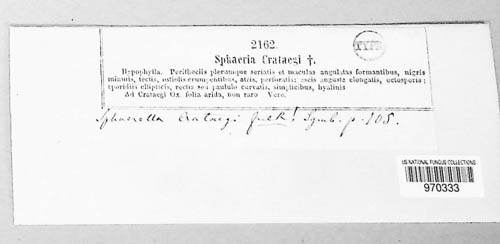 2162.
TYPE
Sphaeria Crataegi †.
Hypophylla. Peritheciis plerumque seriatis et maculas angulatas formantibus, nigris
minutis, tectis, ostiolis erumpentibus, atris, perforatis; ascis anguste elongatis, octosporis;
sporidiis ellipticis, rectis seu paululo curvatis, simplicibus, hyalinis
Ad Crataegi Ox. folia arida, non raro Vere.
Sphaerella Crataegi fuck! Symb. p. 105.
US NATIONAL FUNGUS COLLECTIONS
970333